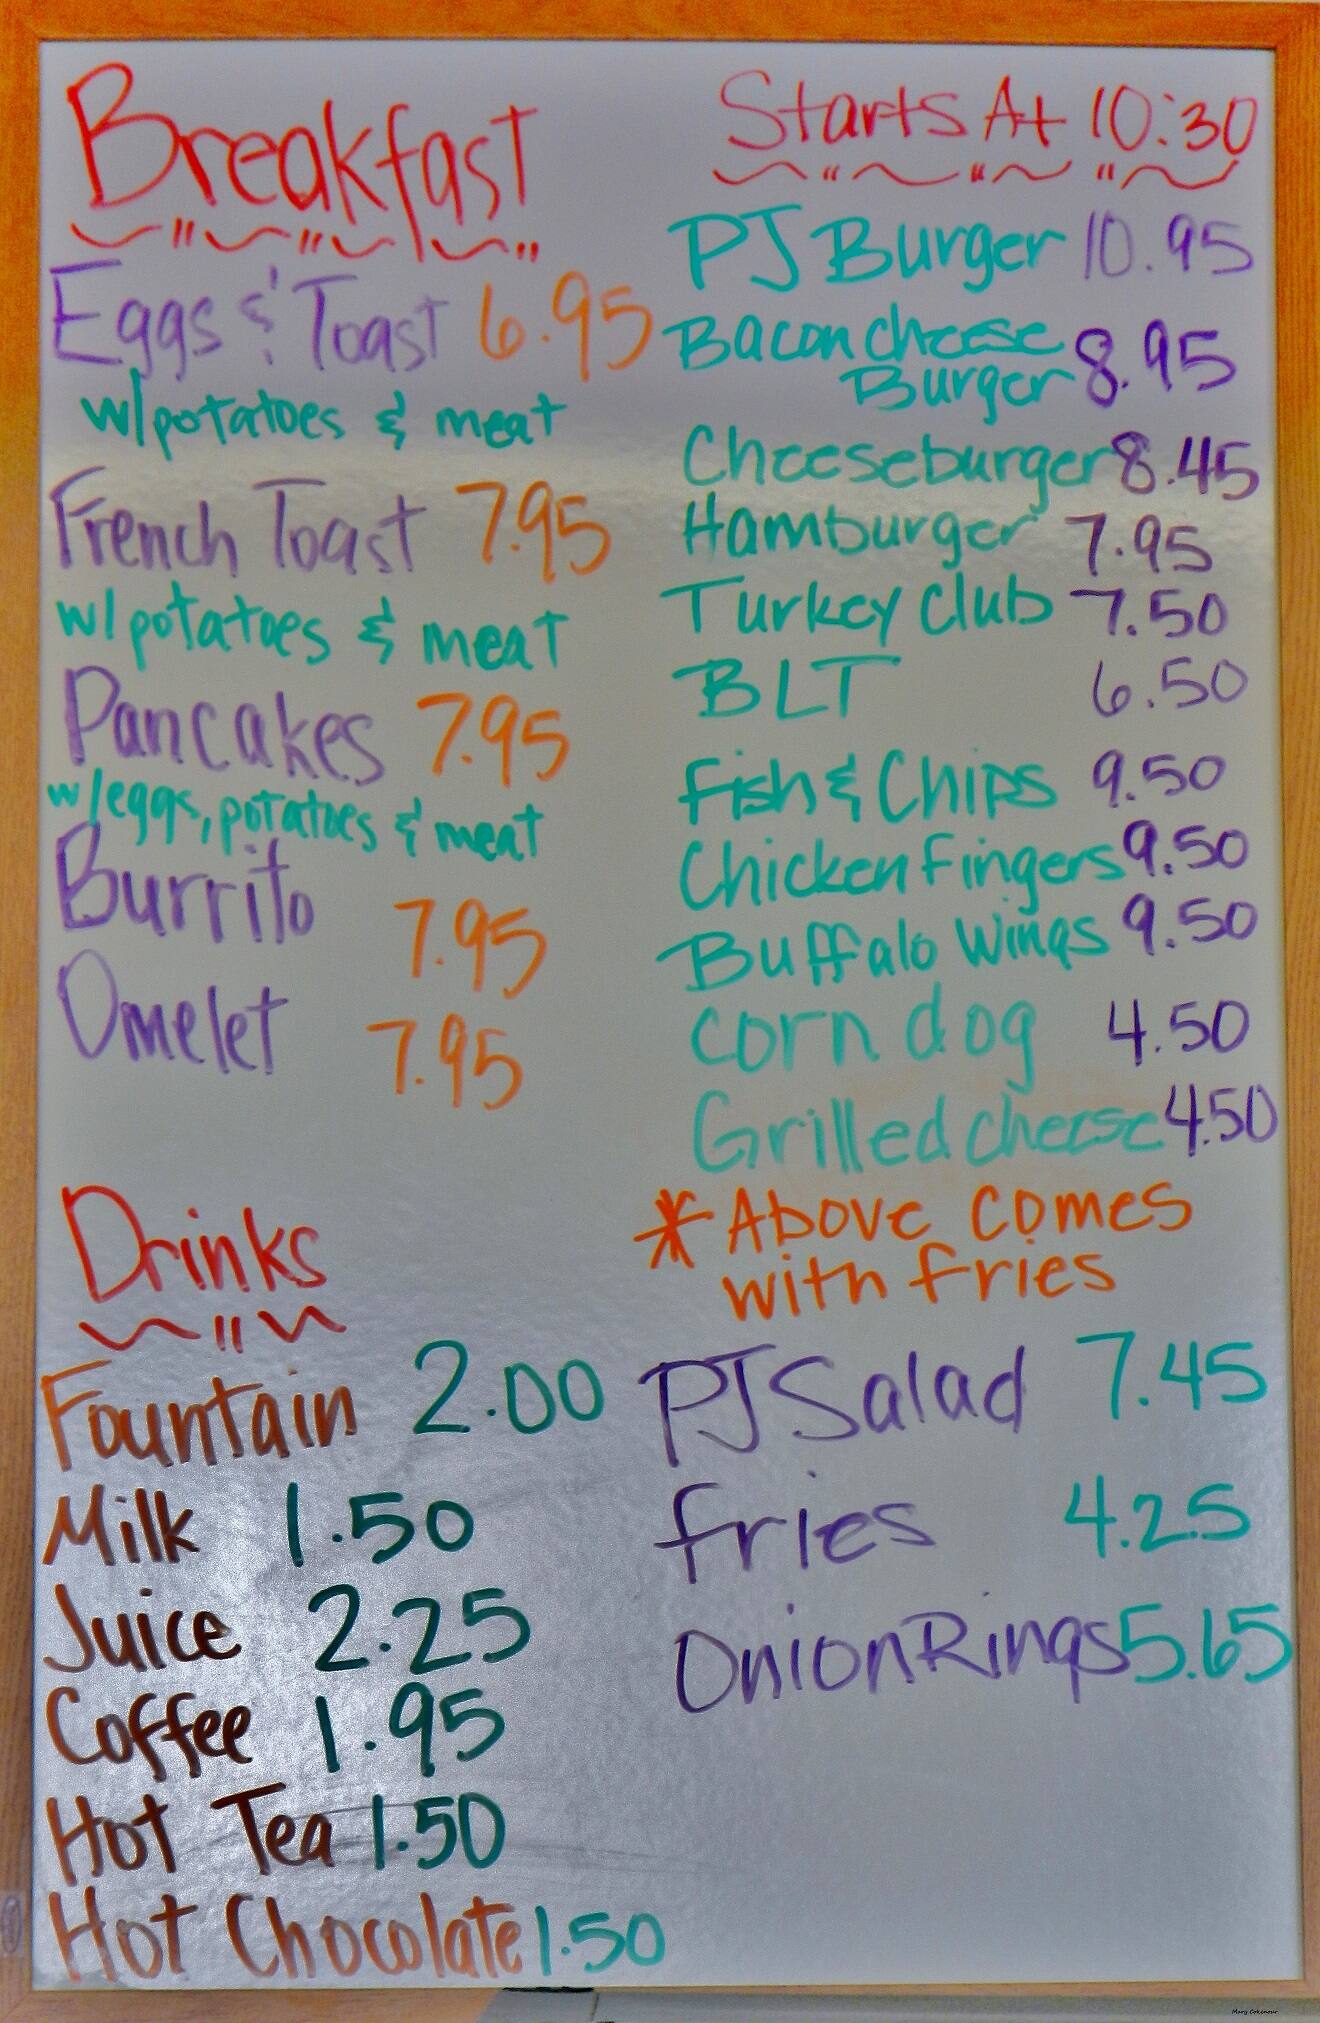 Breakfast
Eggs & Toast 6.95
w/potatoes & meat
French Toast 7.95
w/potatoes & meat
Pancakes 7.95
w/eggs, potatoes & meat
Burrito 7.95
Omelet 7.95
Drinks
Fountain 2.00
Milk 1.50
Juice 2.25
Coffee 1.95
Hot Tea 1.50
Hot Chocolate 1.50
Starts At 10:30
PJ Burger 10.95
Bacon cheese
Burger 8.95
Cheeseburger 8.45
Hamburger 7.95
Turkey Club 7.50
BLT 6.50
Fish & Chips 9.50
Chicken Fingers 9.50
Buffalo Wings 9.50
corn dog 4.50
Grilled cheese 4.50
* Above comes
with fries
PJ Salad 7.45
fries 4.25
Onion Rings 5.65
Mary Cokenour